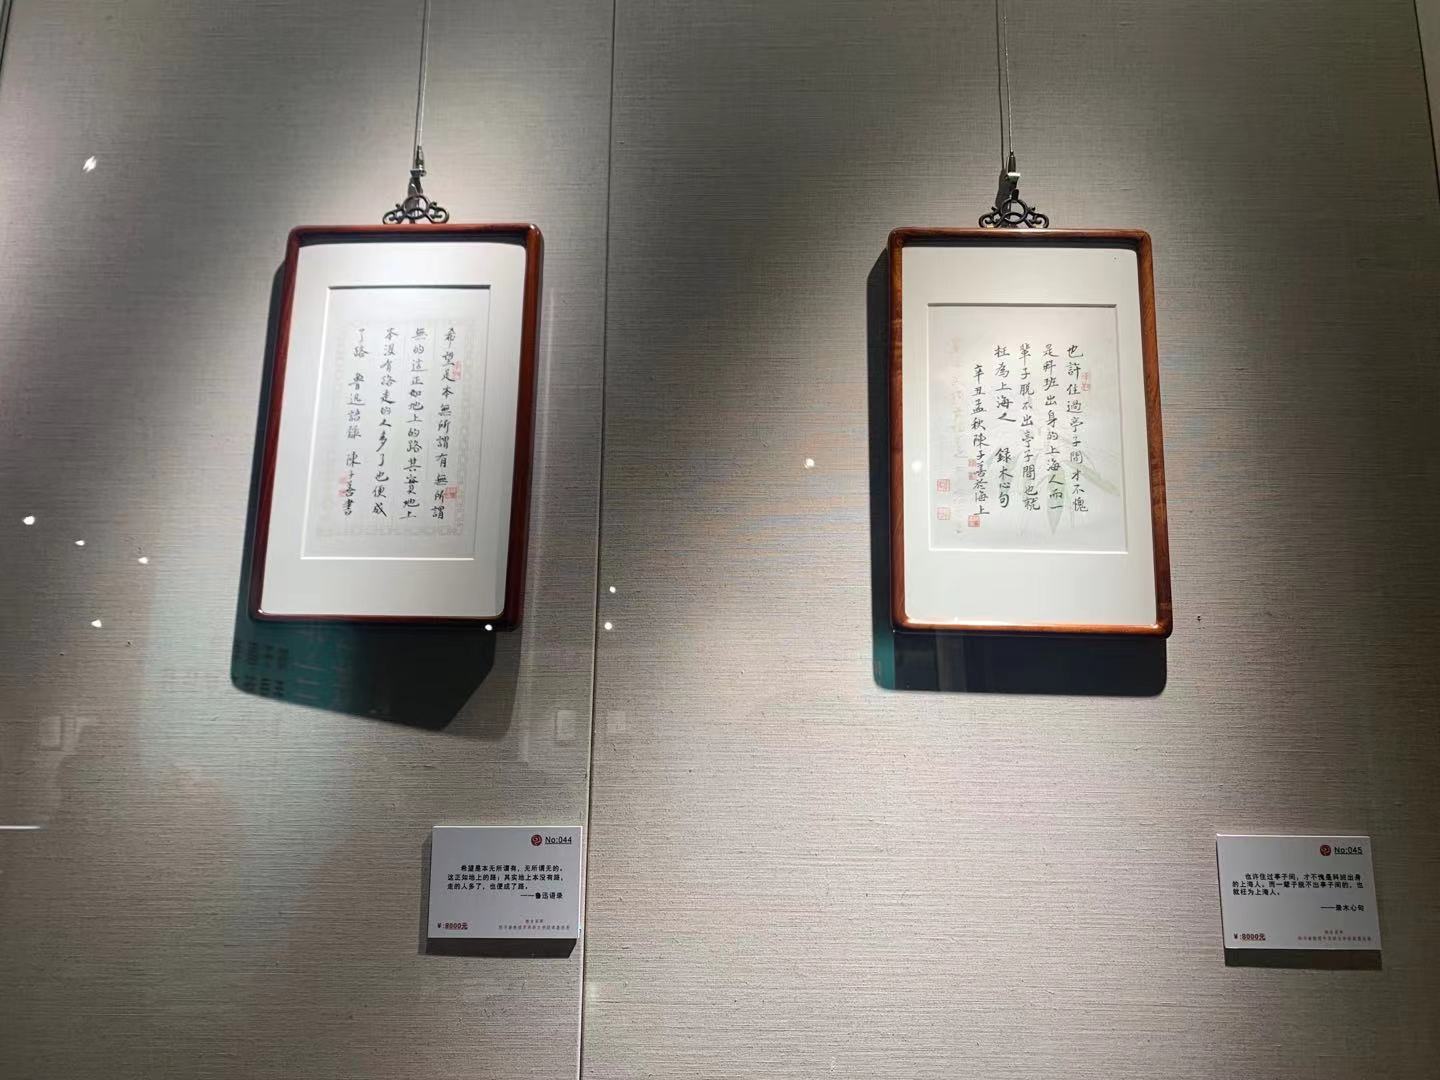 希望是本無所謂有無所謂
無的這正如地上的路其實地上
本沒有路走的人多了也便成
了路 魯迅語錄 陳子善書
也許住過亭子間才不愧
是科班出身的上海人而一
輩子脫不出亭子間也就
枉為上海人 錄木心句
辛丑孟秋陳子善於海上
No:044
希望是本无所谓有，无所谓无的。
这正如地上的路；其实地上本没有路，
走的人多了，也便成了路。
——鲁迅语录
¥:8000元
No:045
也许住过亭子间，才不愧是科班出身
的上海人。而一辈子脱不出亭子间的，也
就枉为上海人。
——录木心句
¥:8000元